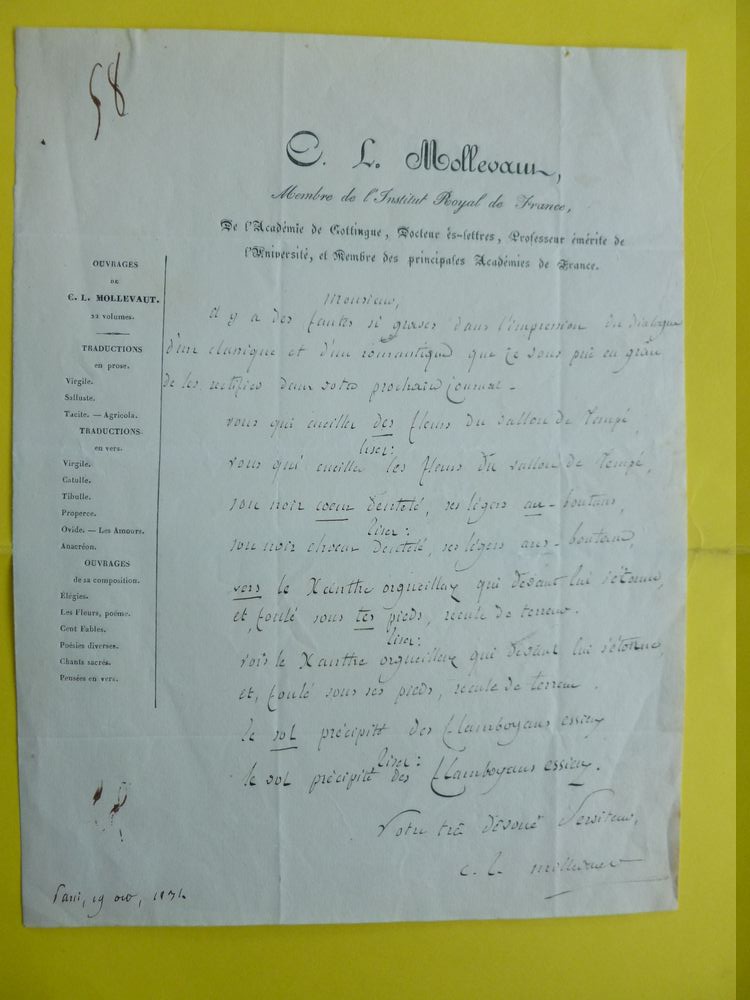 58
C. L. Mollevaut,
Membre de l'Institut Royal de France,
De l'Académie de Gottingue, Docteur ès-lettres, Professeur émérite de
l'Université, et Membre des principales Académies de France.
OUVRAGES
DE
C. L. MOLLEVAUT.
22 volumes.
TRADUCTIONS
en prose.
Virgile.
Salluste.
Tacite. — Agricola.
TRADUCTIONS
en vers.
Virgile.
Catulle.
Tibulle.
Properce.
Ovide. — Les Amours.
Anacréon.
OUVRAGES
de sa composition.
Élégies.
Les Fleurs, poème.
Cent Fables.
Poésies diverses.
Chants sacrés.
Pensées en vers.
Monsieur,
il y a des fautes si graves dans l'impression du dialogue
d'un classique et d'un romantique que je vous prie en grâce
de les rectifier dans votre prochain journal.
vous qui cueillez des fleurs du vallon de Tempé
lisez:
vous qui cueillez les fleurs du vallon de Tempé,
son noir coeur dentelé, ses légers au-boutans,
lisez:
son noir choeur dentelé, ses légers arcs-boutans,
vers le Xanthe orgueilleux qui devant lui s'étonne,
et, foulé sous tes pieds, recule de terreur.
lisez:
vois le Xanthe orgueilleux qui devant lui s'étonne,
et, foulé sous ses pieds, recule de terreur.
le sol précipité des flamboyans essieux
lisez:
le vol précipité des flamboyans essieux.
Votre très dévoué Serviteur,
C. L. Mollevaut
Paris, 19